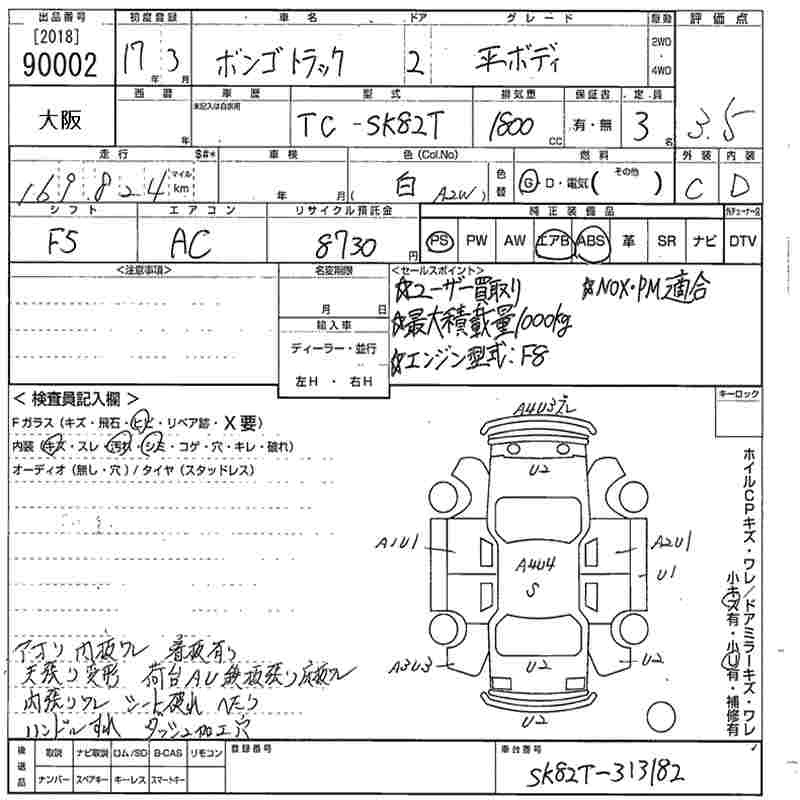 出品番号 初度登録 車名 ドア グレード 駆動 評価点
[2018]
90002 17年 3月 ボンゴトラック 2 平ボディ 2WD・4WD
大阪 西暦 車歴 型式 排気量 保証書 定員
未記入は自家用
年 TC-SK82T 1800CC 有・無 3名 3.5
走行 $#* 車検 色(Col.No) 燃料 外装 内装
169.824 マイル km 年 月 (白 A2W) 色替 G・D・電気( その他 ) C D
シフト エアコン リサイクル預託金 純正装備品
F5 AC 8730円 PS PW AW エアB ABS 革 SR ナビ DTV
<注意事項> 名変期限 <セールスポイント>
月 日 ☆ユーザー買取り ☆NOX・PM適合
輸入車 ☆最大積載量1000kg
ディーラー・並行 ☆エンジン型式:F8
左H・右H
< 検査員記入欄 > キーロック
Fガラス(キズ・飛石・ヒビ・リペア跡・X要)
内装(キズ・スレ・汚れ・シミ・コゲ・穴・キレ・破れ)
オーディオ(無し・穴)/タイヤ(スタッドレス)
A4U3
U2
A1U1 A2U1
U1
A4U4
S
A3U3 U2 U2
U2
ホイルCPキズ・ワレ/ドアミラーキズ・ワレ
小キズ有・小U有・補修有
アオリ内板ワレ 看板有り
天張り変形 荷台AU鉄板張り床板ワレ
内張りワレ シート破れ へたり
ハンドルすれ ダッシュ加工穴
後送品 取説 ナビ取説 ロム/SD B-CAS リモコン 登録番号 車台番号
ナンバー スペアキー キーレス スマートキー SK82T-313182